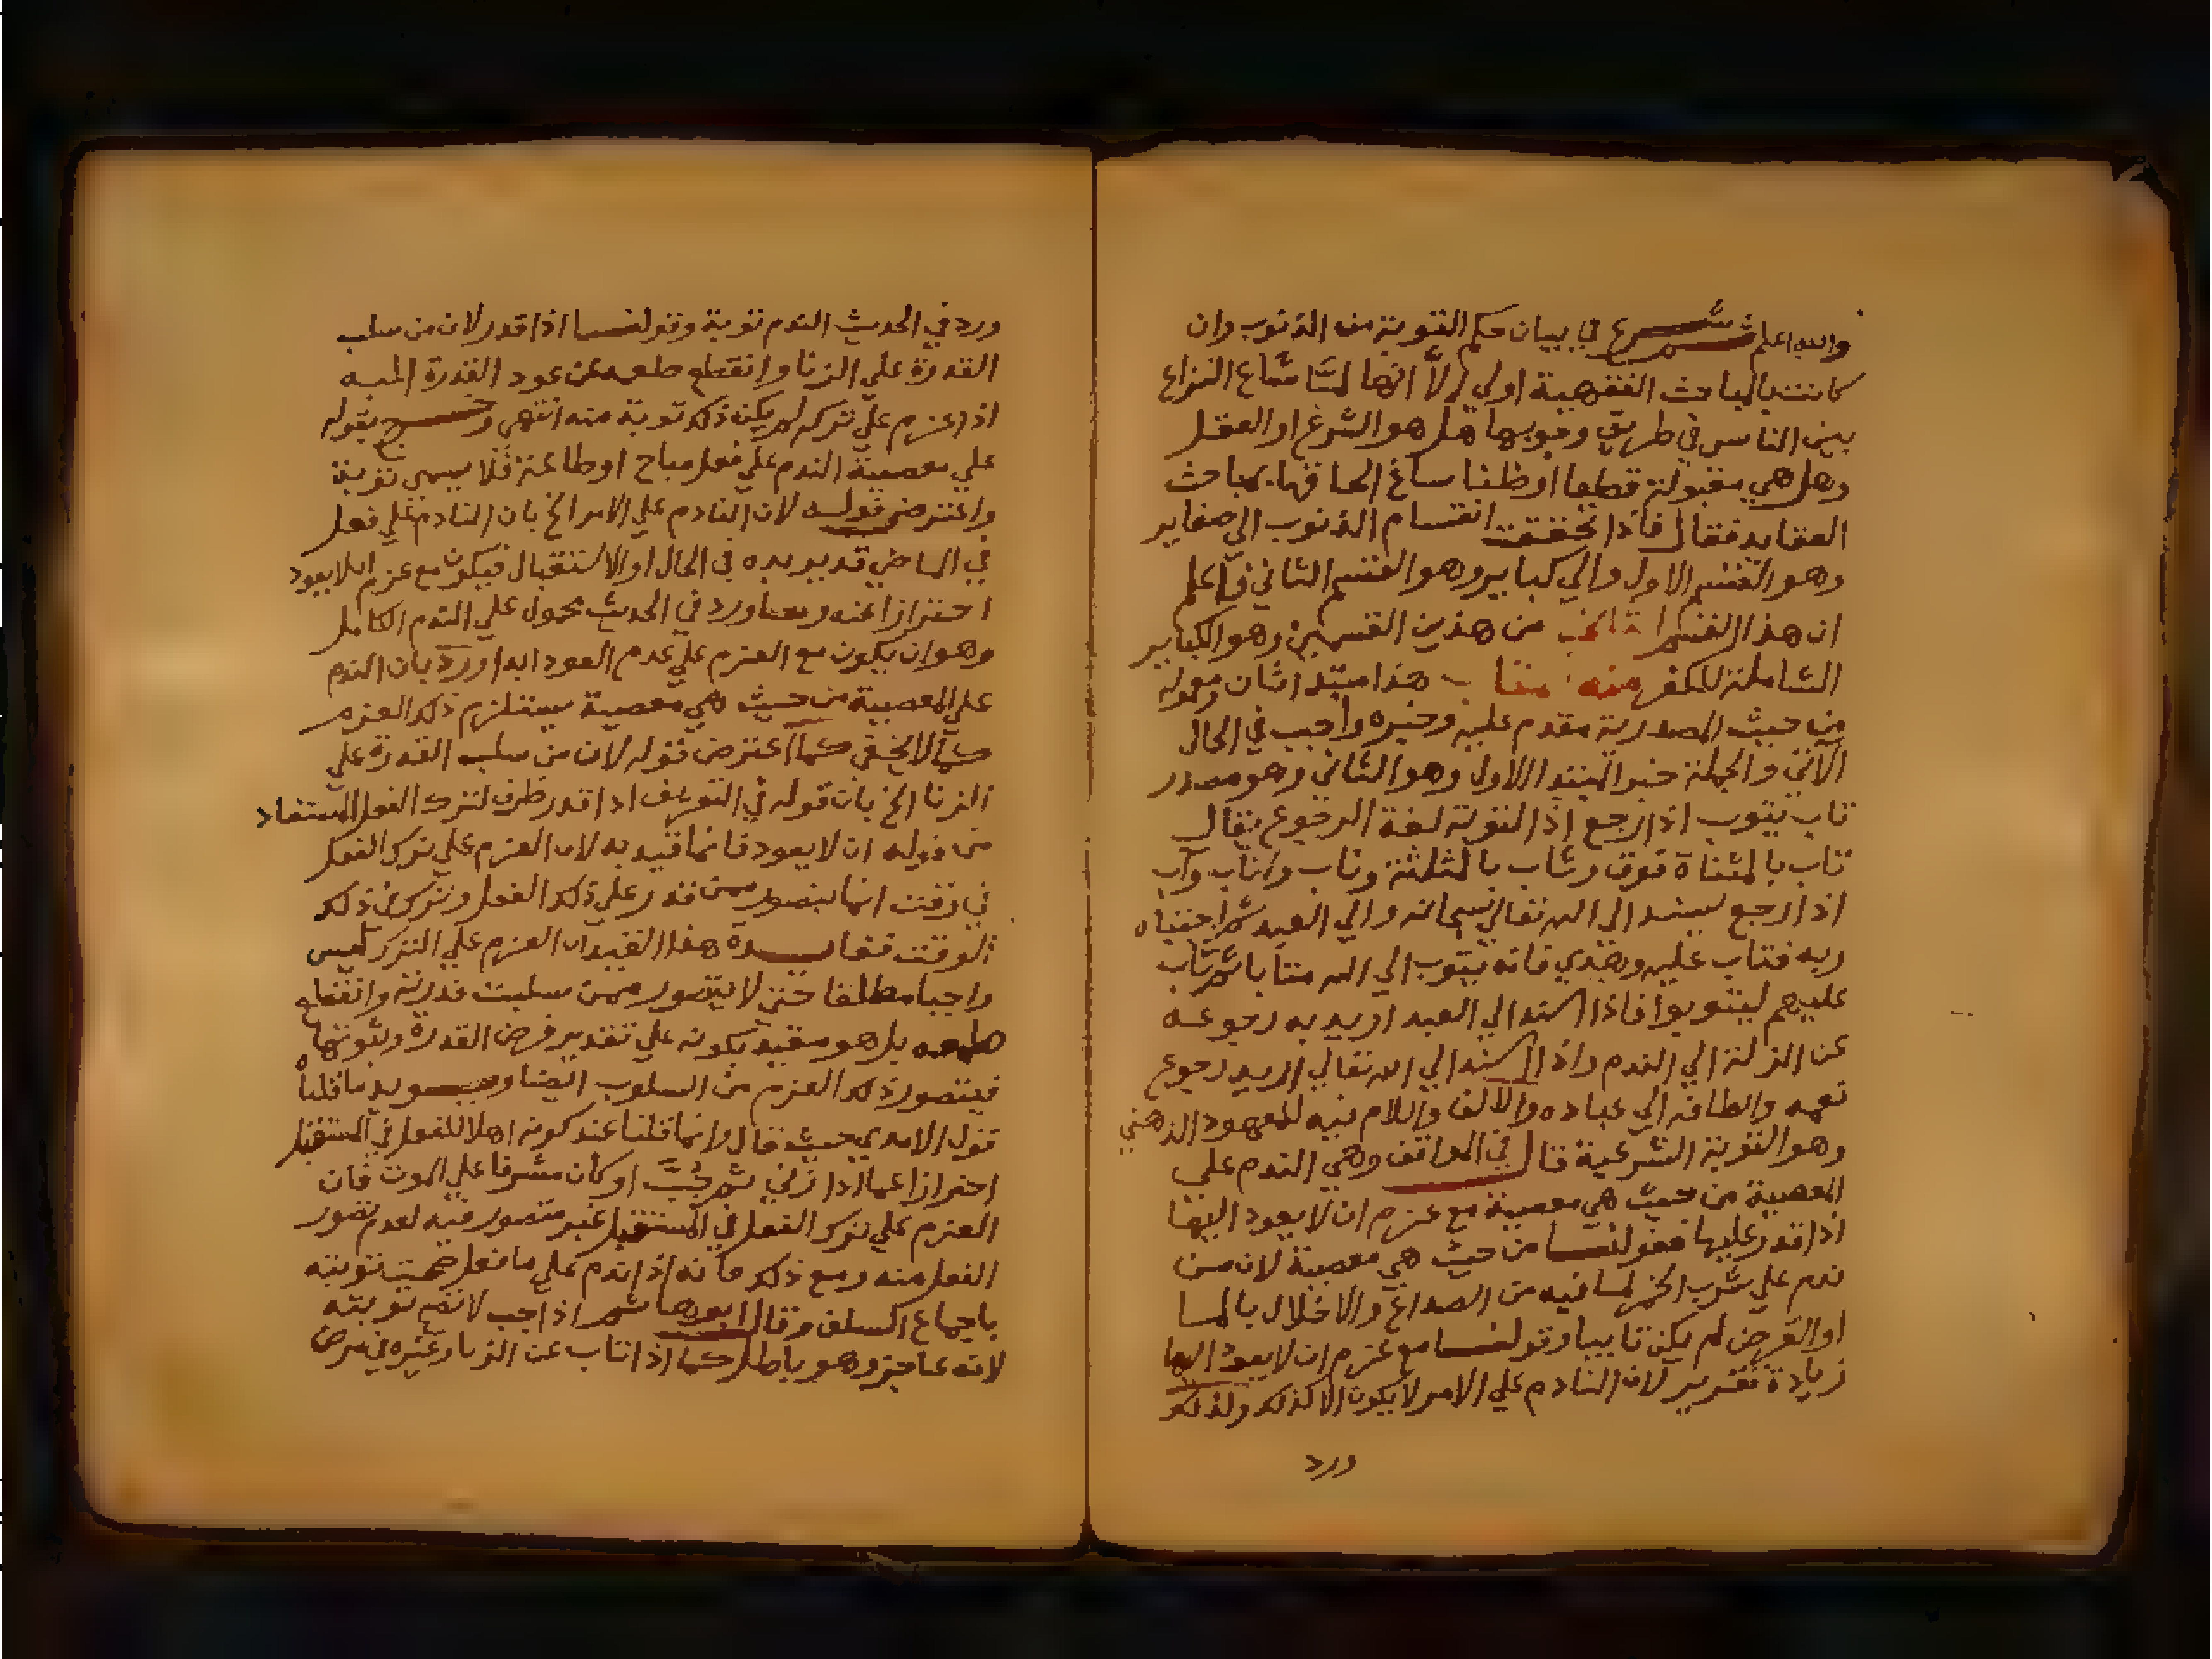 والله اعلم ثم شرع في بيان حكم التوبة من الذنوب وان
كانت بالمباحث الفقهية اولي الا انها لما شاع النزاع
بين الناس في طريق وجوبها هل هو الشرع او العقل
وهل هي مقبولة قطعا او ظنا ساغ الحاقها بمباحث
العقايد فقال فاذا تحققت انقسام الذنوب الي صغاير
وهو القسم الاول والي كباير وهو القسم الثاني فاعلم
ان هذا القسم الثاني من هذين القسمين وهو الكباير
الشاملة للكفر منه المتاب هذا مبتدا ثان ومعموله
من حيث المصدرية مقدم عليه وخبره واجب في الحال
الآتي والجملة خبر المبتدا الاول وهو الثاني وهو مصدر
تاب يتوب اذا رجع اذ التوبة لغة الرجوع يقال
تاب بالمثناة فوق وثاب بالمثلثة وناب واناب وآب
اذا رجع يسند الي الله تعالي سبحانه والي العبد ثم اجتباه
ربه فتاب عليه وهدي فانه يتوب الي الله متابا ثم تاب
عليهم ليتوبوا فاذا اسند الي العبد اريد به رجوعه
عن الزلة الي الندم واذا اسند الي الله تعالي اريد رجوع
نعمه والطافه الي عباده والالف واللام فيه للمعهود الذهني
وهو التوبة الشرعية قال في المواقف وهي الندم علي
المعصية من حيث هي معصية مع عزم ان لا يعود اليها
اذا قدر عليها فقولنا من حيث هي معصية لان من
ندم علي شرب الخمر لما فيه من الصداع والاخلال بالمال
او العرض لم يكن تايبا وقولنا مع عزم ان لا يعود اليها
زيادة تقرير لان النادم علي الامر لا يكون الا كذلك ولذلك
ورد
ورد في الحديث الندم توبة وقولنا اذا قدر لان من سلب
القدرة علي الزنا وانقطع طمعه عن عود القدرة اليه
اذا عزم علي تركه لم يكن ذلك توبة منه انتهي وخرج بقوله
علي معصية الندم علي فعل مباح او طاعة فلا يسمي توبة
واعترض قوله لان النادم علي الامر الخ بان النادم علي فعل
في الماضي قد يريده في الحال او الاستقبال فيكون مع عزم ان لا يعود
احترازا عنه وما ورد في الحديث محمول علي الندم الكامل
وهو ان يكون مع العزم علي عدم العود ابدا ورد بان الندم
علي المعصية من حيث هي معصية يستلزم ذلك العزم
كما لا يخفي كما اعترض قوله لان من سلب القدرة علي
الزنا الخ بان قوله في التعريف اذا قدر ظرف لترك الفعل المستفاد
من قوله ان لا يعود فانما قيد به لان العزم علي ترك الفعل
في وقت انما يتصور ممن قدر علي ذلك الفعل وتركه في ذلك
الوقت ففايدة هذا القيد ان العزم علي الترك ليس
واجبا مطلقا حتي لا يتصور ممن سلبت قدرته وانقطع
طمعه بل هو مقيد بكونه علي تقدير فرض القدرة وثبوتها
فيتصور ذلك العزم من المسلوب ايضا ويويد ما قلناه
قول الامدي حيث قال وانما قلنا عند كونه اهلا للفعل في المستقبل
احترازا عما اذا زني ثم جب او كان مشرفا علي الموت فان
العزم علي ترك الفعل في المستقبل غير متصور فيه لعدم تصور
الفعل منه ومع ذلك فانه اذا ندم علي ما فعل صحت توبته
باجماع السلف وقال ابو هاشم اذا جب لا تصح توبته
لانه عاجز وهو باطل كما اذا تاب عن الزنا وغيره في مرض